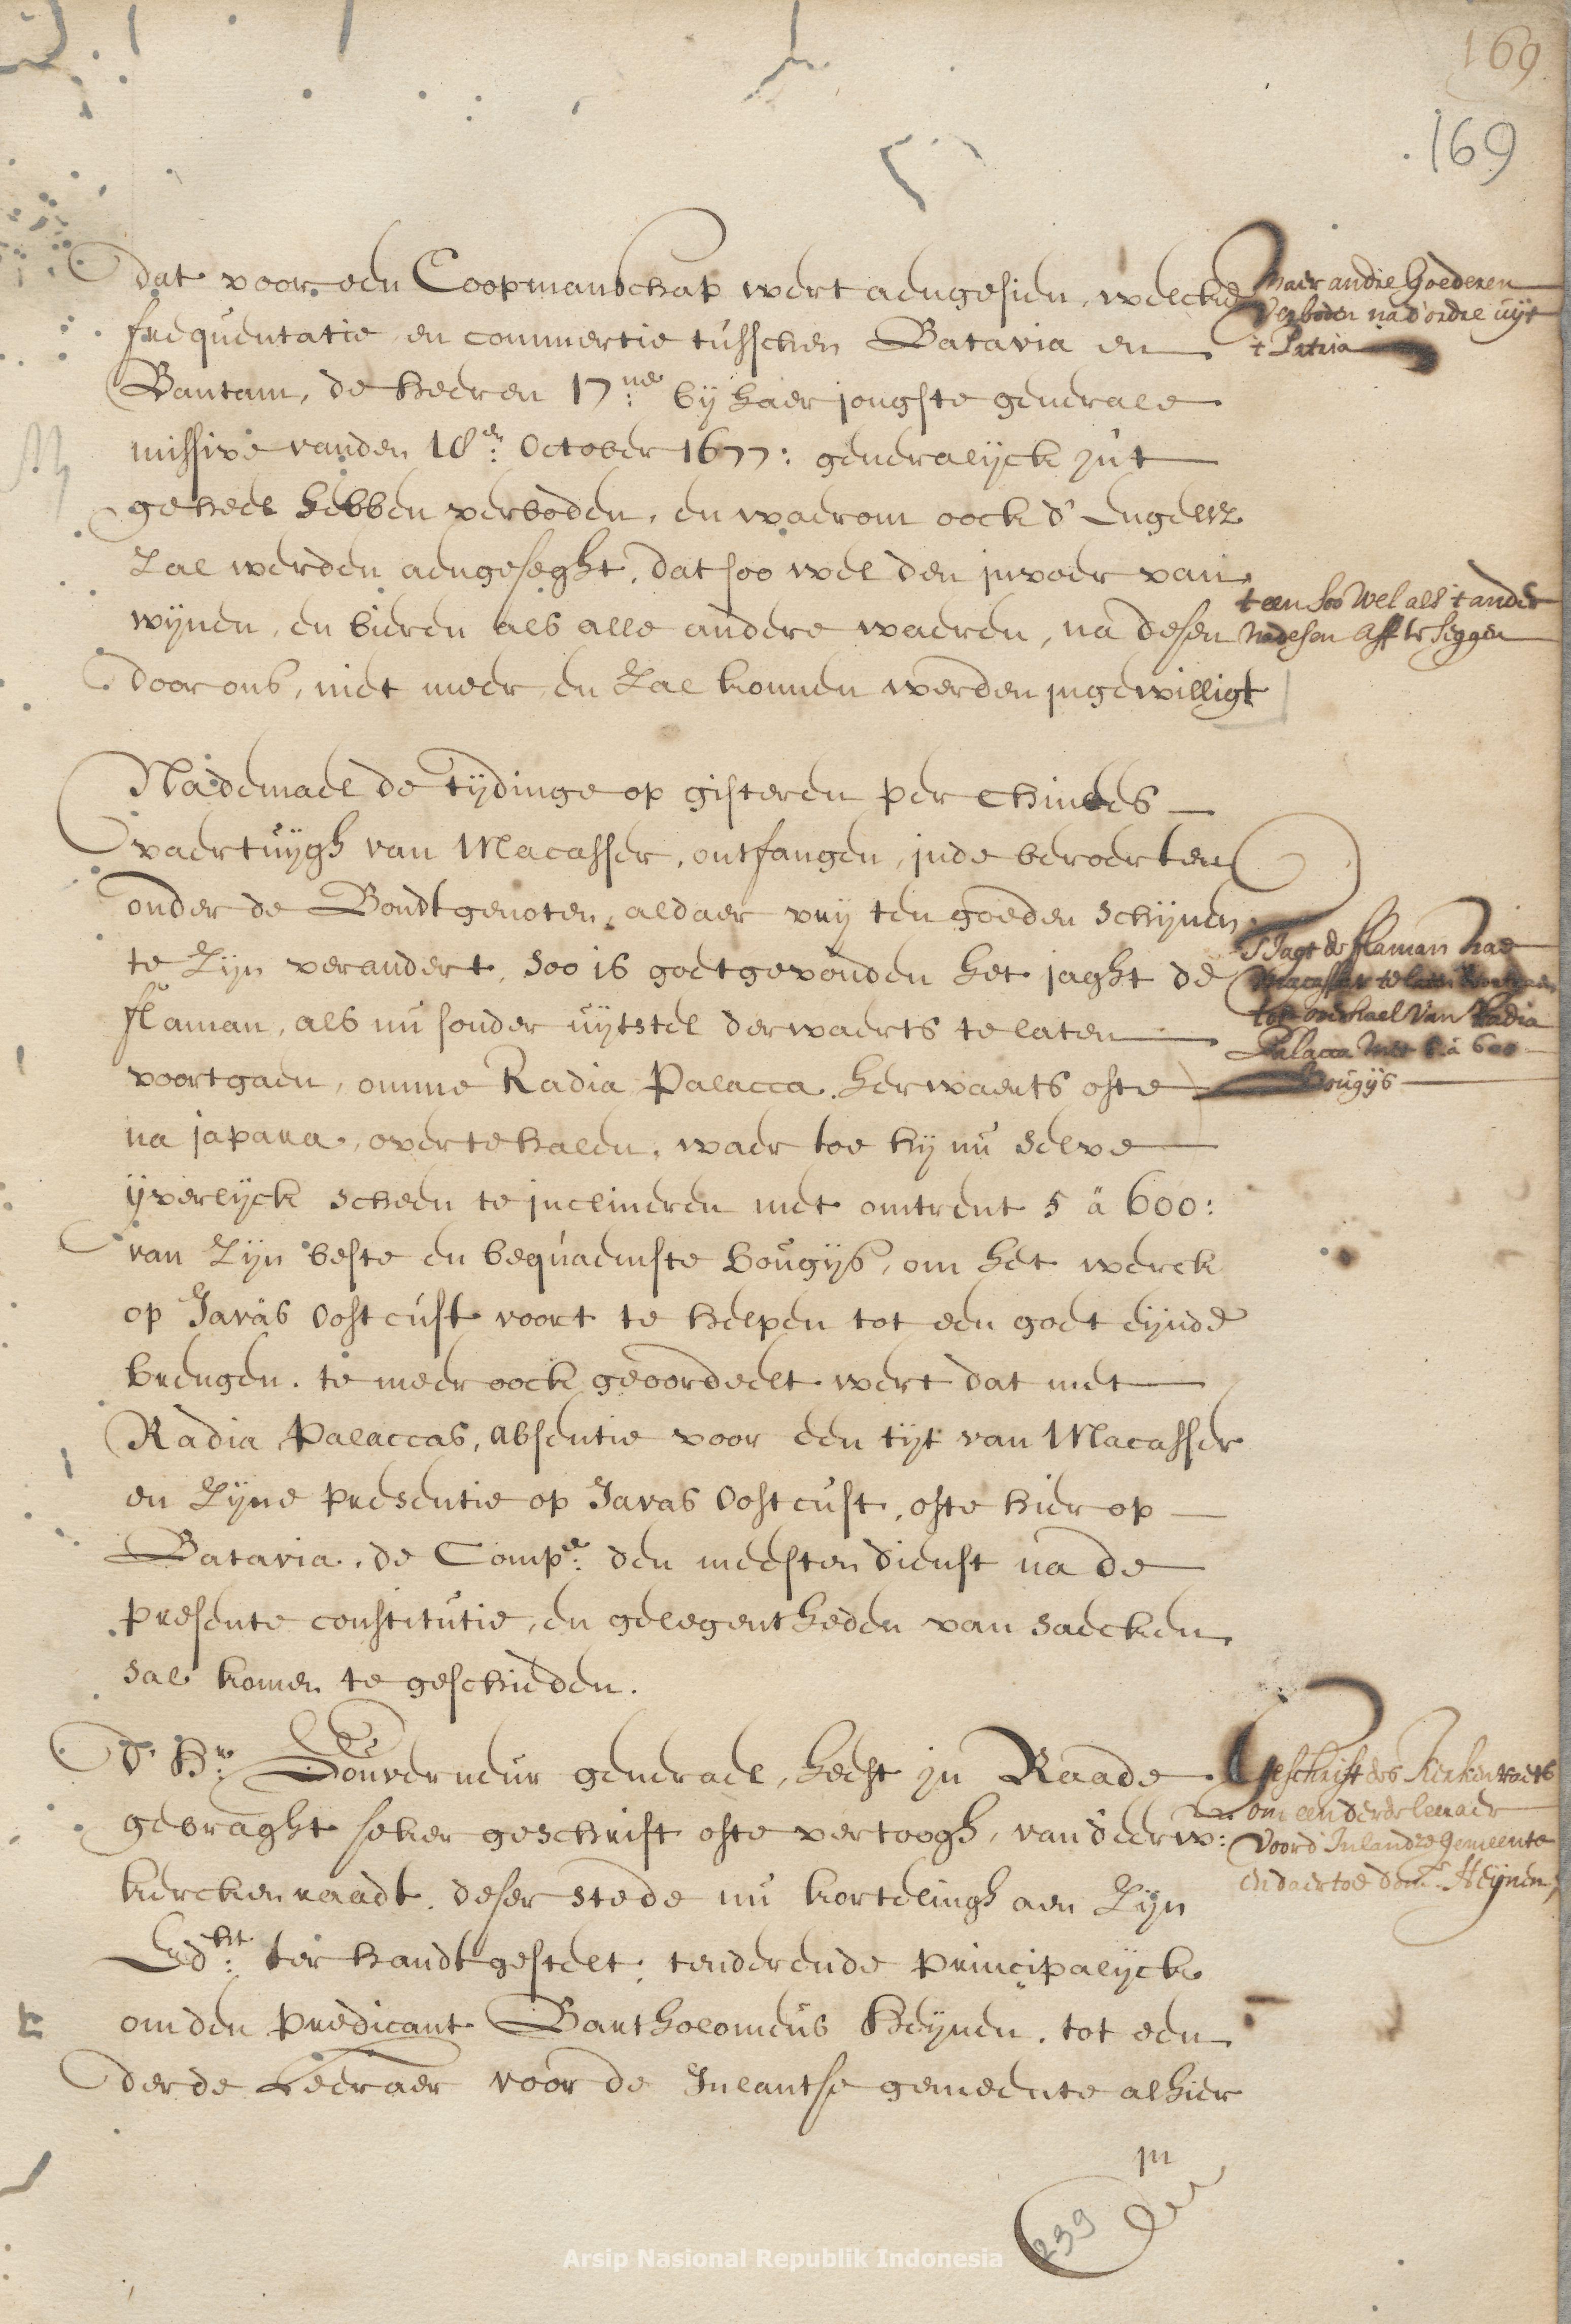 169
169
dat voor een Coopmanschap wert aengesien, welcke
frequentatie en commertie tusschen Batavia en
Bantam, de heeren 17:ne bij haer jongste generale
missive vanden 18:en October 1677: generalijck in't
geheel hebben verboden, en waerom oock d' Engelse
zal werden aengeseght, dat soo wel den invoer van
wijnen, en bieren als alle andere waeren, na desen
door ons, niet meer en zal konnen werden ingewilligt
maer andre Goederen
verboden na d'ordre uijt
t Patria
t een soo wel als t ander
nadesen aff te seggen
Nademael de tijdinge op gisteren per Chinees
vaertuijgh van Macasser, ontfangen, inde beroerten
onder de Bondtgenoten, aldaer vrij ten goeden schijnen
te zijn verandert, soo is goetgevonden het jaght de
flaman, als nu sonder uijtstel derwaerts te laten
voortgaen, omme Radia Palacca herwaerts ofte
na japara, over te halen, waer toe hij nu selve
ijverlijck scheen te inclineren met omtrent 5 â 600:
van zijn beste en bequaemste Bougijs, om het werck
op Javas Oostcust voort te helpen tot een goet eijnde
brengen. te meer oock geoordeelt wert dat met
Radia Palaccas, absentie voor een tijt van Macasser
en zijne presentie op Javas Oostcust, ofte hier op
Batavia, de Comp:e den meesten dienst na de
presente constitutie, en gelegentheden van saecken
sal komen te geschieden.
T Jagt de flaman nae
Macasser te laten
tot onderhael van Radia
Palacca met 5 â 600
Bougijs
D' H:r Gouverneur generael, heeft in Raade
gebraght seker geschrift ofte vertoogh, van d' eerw:
kerckenraadt deser stede nu kortelingh aen zijn
Ed:ht ter handt gestelt; tenderende principalijck
om den predicant Bartholomeus Heijnen, tot een
derde Leeraer voor de Inlantse gemeente alhier
Geschrift des Kerkenraets
om een derde leeraer
voor d' Inlandze gemeente
en daertoe dom:e Heijnen
in
den
239
Arsip Nasional Republik Indonesia